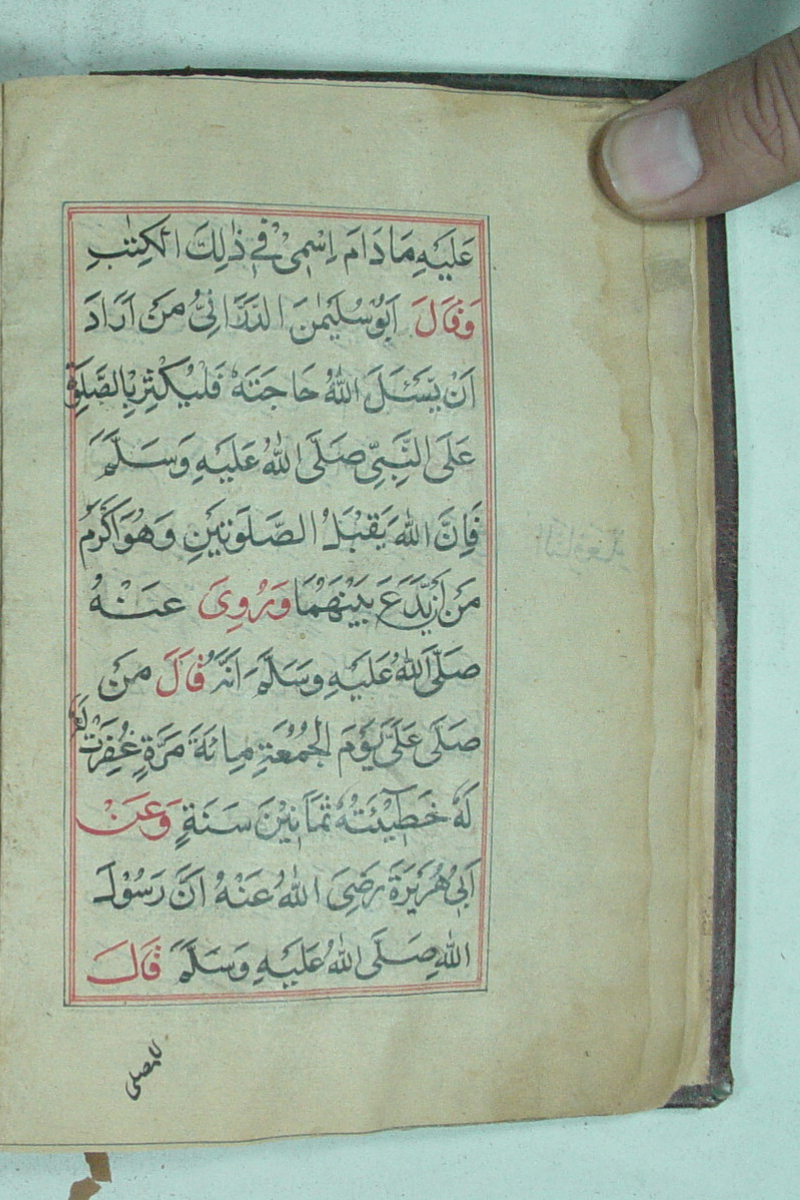 عَلَيْهِ مَا دَامَ اِسْمِىْ فِىْ ذٰلِكَ الْكِتٰبِ
وَقَالَ اَبُوْ سُلَيْمٰنَ الدَّرَانِىُّ مَنْ اَرَادَ
اَنْ يَّسْئَلَ اللّٰهَ حَاجَتَهٗ فَلْيُكْثِرْ بِالصَّلٰوةِ
عَلَى النَّبِىِّ صَلَّى اللّٰهُ عَلَيْهِ وَسَلَّمَ
فَاِنَّ اللّٰهَ يَقْبَلُ الصَّلٰوتَيْنِ وَهُوَ اَكْرَمُ
مِنْ اَنْ يَّدَعَ بَيْنَهُمَا وَرُوِىَ عَنْهُ
صَلَّى اللّٰهُ عَلَيْهِ وَسَلَّمَ اَنَّهٗ قَالَ مَنْ
صَلّٰى عَلَىَّ يَوْمَ الْجُمُعَةِ مِائَةَ مَرَّةٍ غُفِرَتْ
لَهٗ خَطِيْئَتُهٗ ثَمَانِيْنَ سَنَةٍ وَعَنْ
اَبِىْ هُرَيْرَةَ رَضِىَ اللّٰهُ عَنْهُ اَنَّ رَسُوْلَ
اللّٰهِ صَلَّى اللّٰهُ عَلَيْهِ وَسَلَّمَ قَالَ
للمصلى